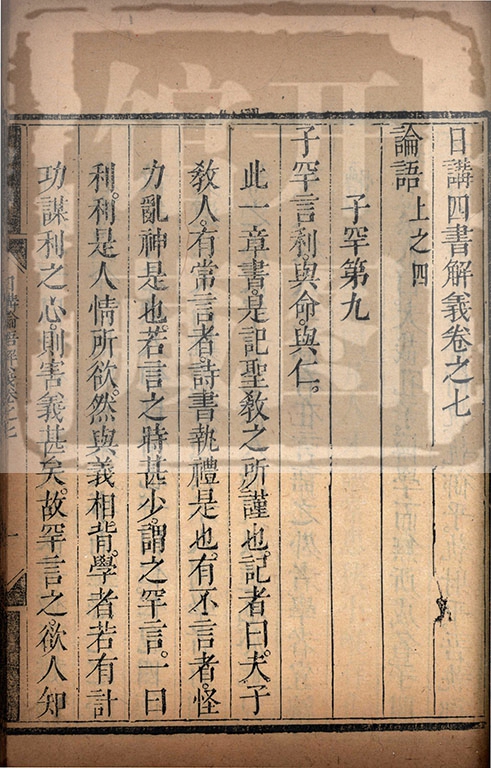 日講四書解義卷之七
論語上之四
子罕第九
子罕言利。與命。與仁。
此一章書。是記聖教之所謹也。記者曰。夫子
教人。有常言者。詩書執禮是也。有不言者。怪
力亂神是也。若言之時甚少。謂之罕言。一曰
利。利是人情所欲。然與義相背。學者若有計
功謀利之心。則害義甚矣。故罕言之。欲人知
日講論語解義卷之七
一